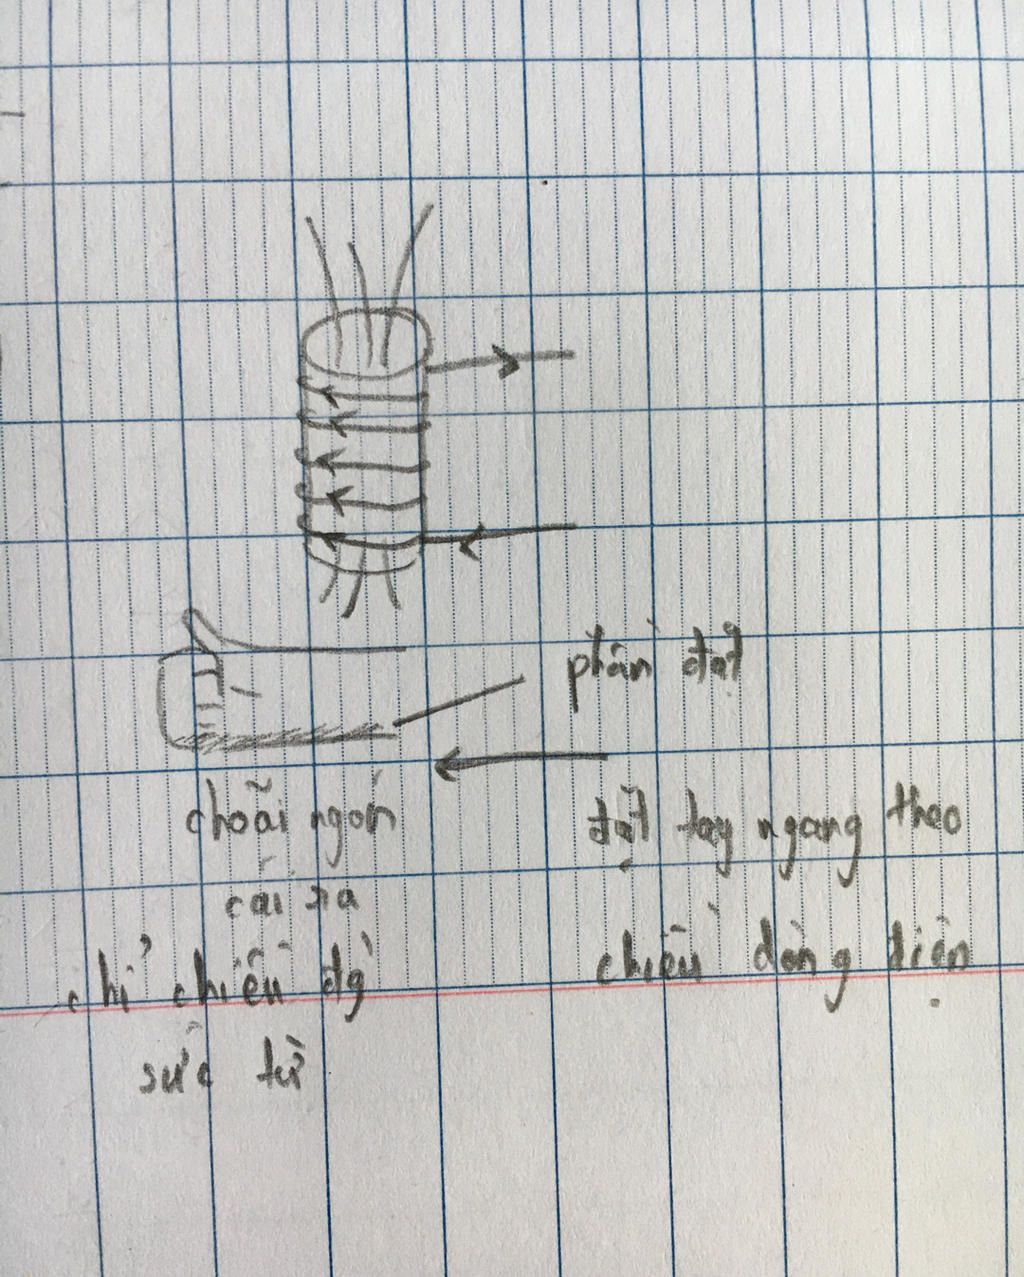 phần đặt
choãi ngón
cái ra
chỉ chiều đg
sức từ
đặt tay ngang theo
chiều dòng điện